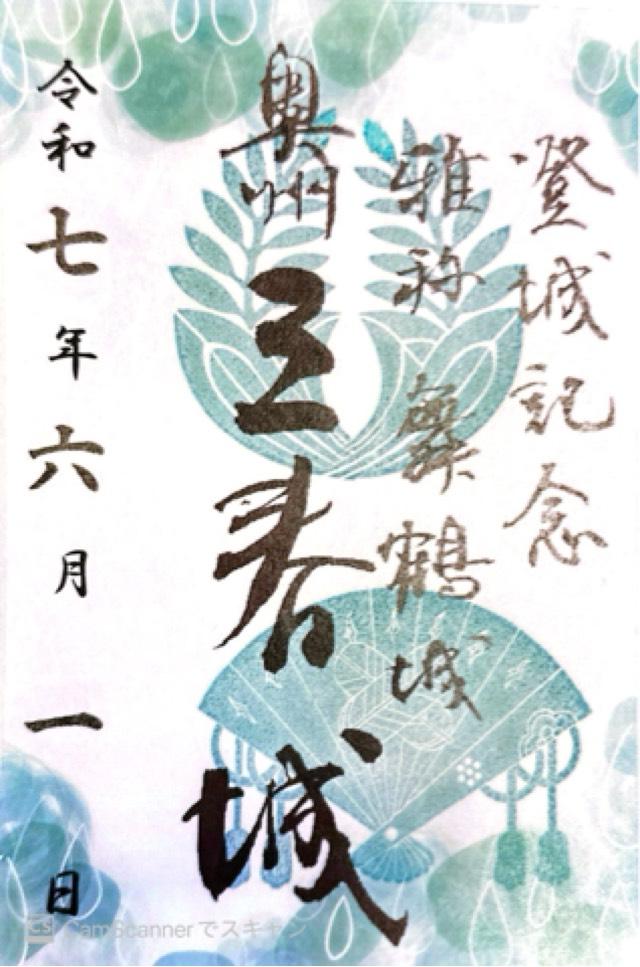 登城記念
雅称 舞鶴城
奥州 三春城
令和七年六月一日
CS CamScannerでスキャン